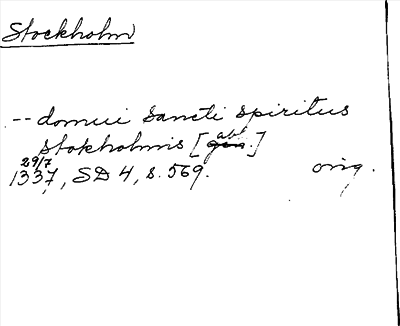 Stockholm
-- domui sancti spiritus
abl.
stokholmis [gen.]
29/7
1337, SD 4, s. 569. orig.